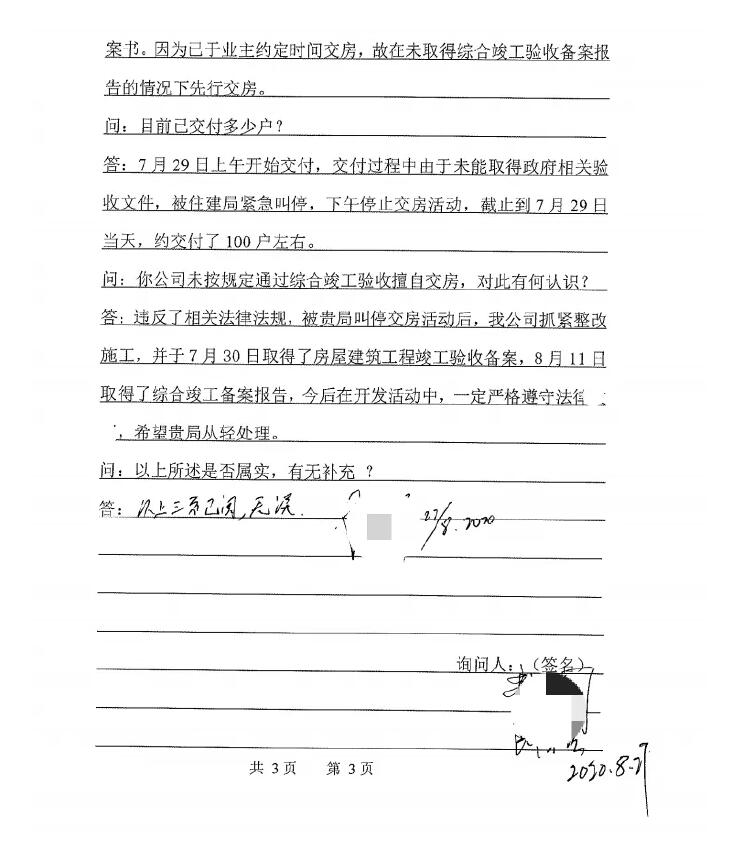 案书。因为已于业主约定时间交房，故在未取得综合竣工验收备案报
告的情况下先行交房。
问：目前已交付多少户？
答：7 月 29 日上午开始交付，交付过程中由于未能取得政府相关验
收文件，被住建局紧急叫停，下午停止交房活动，截止到 7 月 29 日
当天，约交付了 100 户左右。
问：你公司未按规定通过综合竣工验收擅自交房，对此有何认识？
答：违反了相关法律法规，被贵局叫停交房活动后，我公司抓紧整改
施工，并于 7 月 30 日取得了房屋建筑工程竣工验收备案，8 月 11 日
取得了综合竣工备案报告，今后在开发活动中，一定严格遵守法律
，希望贵局从轻处理。
问：以上所述是否属实，有无补充 ？
答：以上三页已阅，无误. 27/8.2020
询问人：（签名）
2020.8.27
共 3 页 第 3 页